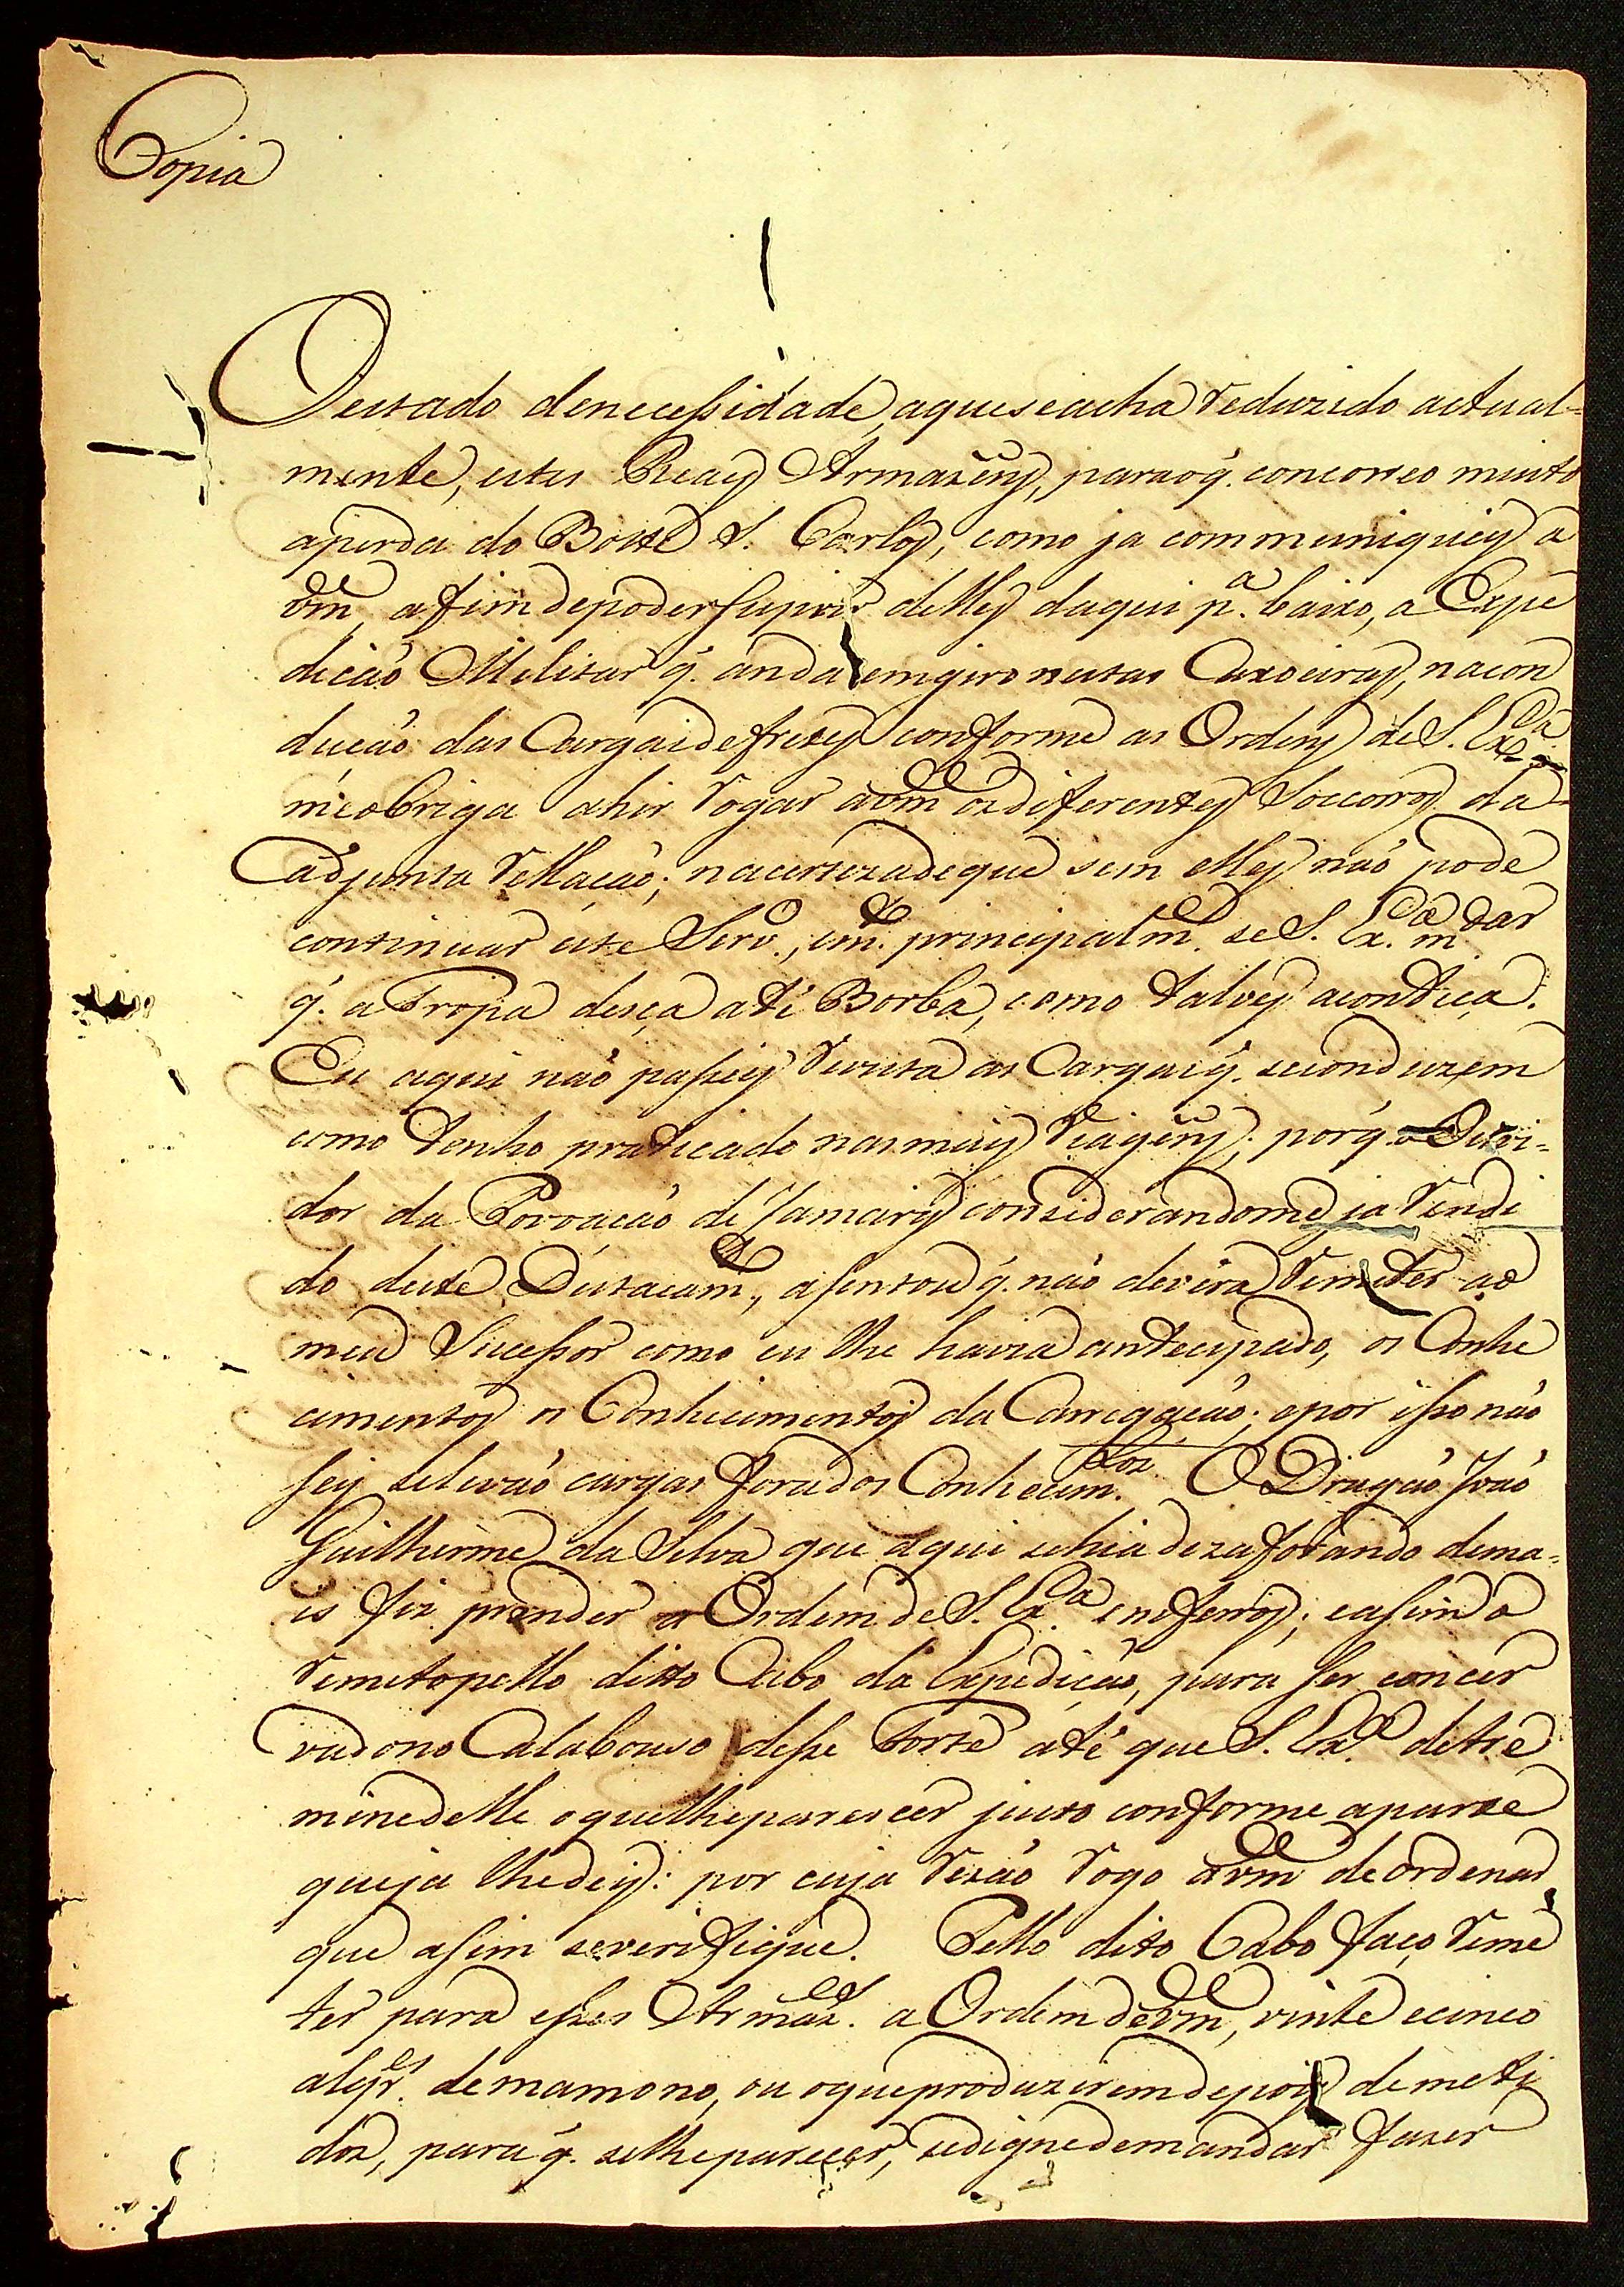 Copia
O estado denecessidade, aqueseacha reduzido actual=
mente, estes Reaes Armazẽns, paraoq̃. concorreo muito
aperda do Bote S. Carlos, como ja communiquey a
Vm.ce afim depoder suprir delles daqui p.a baixo, a Expe
dicaõ Militar q̃. anda emgiro nestas Caxoeiras, nacon
ducaõ das Cargas defretes conforme as Ordens de S. Ex.a
me obriga ahir rogar avm.ce os diferentes Soccorros da
adjunta rellacaõ; nacertezadeque sem elles naõ pode
continuar este Serv.o, em.to principalm.e se S. Ex.a m.dar
q̃. a Tropa desça até Borba, como talvez aconteça.
Eu aqui naõ passey revista as Cargas q̃. seconduzem
como tenho praticado nas mais viagẽns; porq̃. o Dire=
dor da Povoacaõ de Jamary considerandome ja rendi
do deste Destacam.to, asentou q̃. naõ devera remeter ao
meu Sucessor como eu lhe havia antecipado, os Conhe
cimentos os Conhecimentos da Carregacaõ; epor isso naõ
sey selevaõ cargas fora dos Conhecim.tos O Dragaõ Joaõ
Guilherme da Silva que aqui sehia dezaforando dema=
is fiz prender a Ordem de S. Ex.a em ferros; easim o
remetopello ditto Cabo da Expedicaõ, para ser concer
vadono Calabouso desse Forte até que S. Ex.a detre
minedelle oquelheparescer justo conforme aparte
queja lhedey: por cuja rezaõ rogo avm.ce deordenar
que asim severifique. Pello dito Cabo faço reme
ter para esses Armaz.es a Ordem devm.ce, vinte ecinco
alqr.es demamono, ou oqueproduzirem depois demeti
dos, paraq̃. selheparecer, sedignedemandar fazer